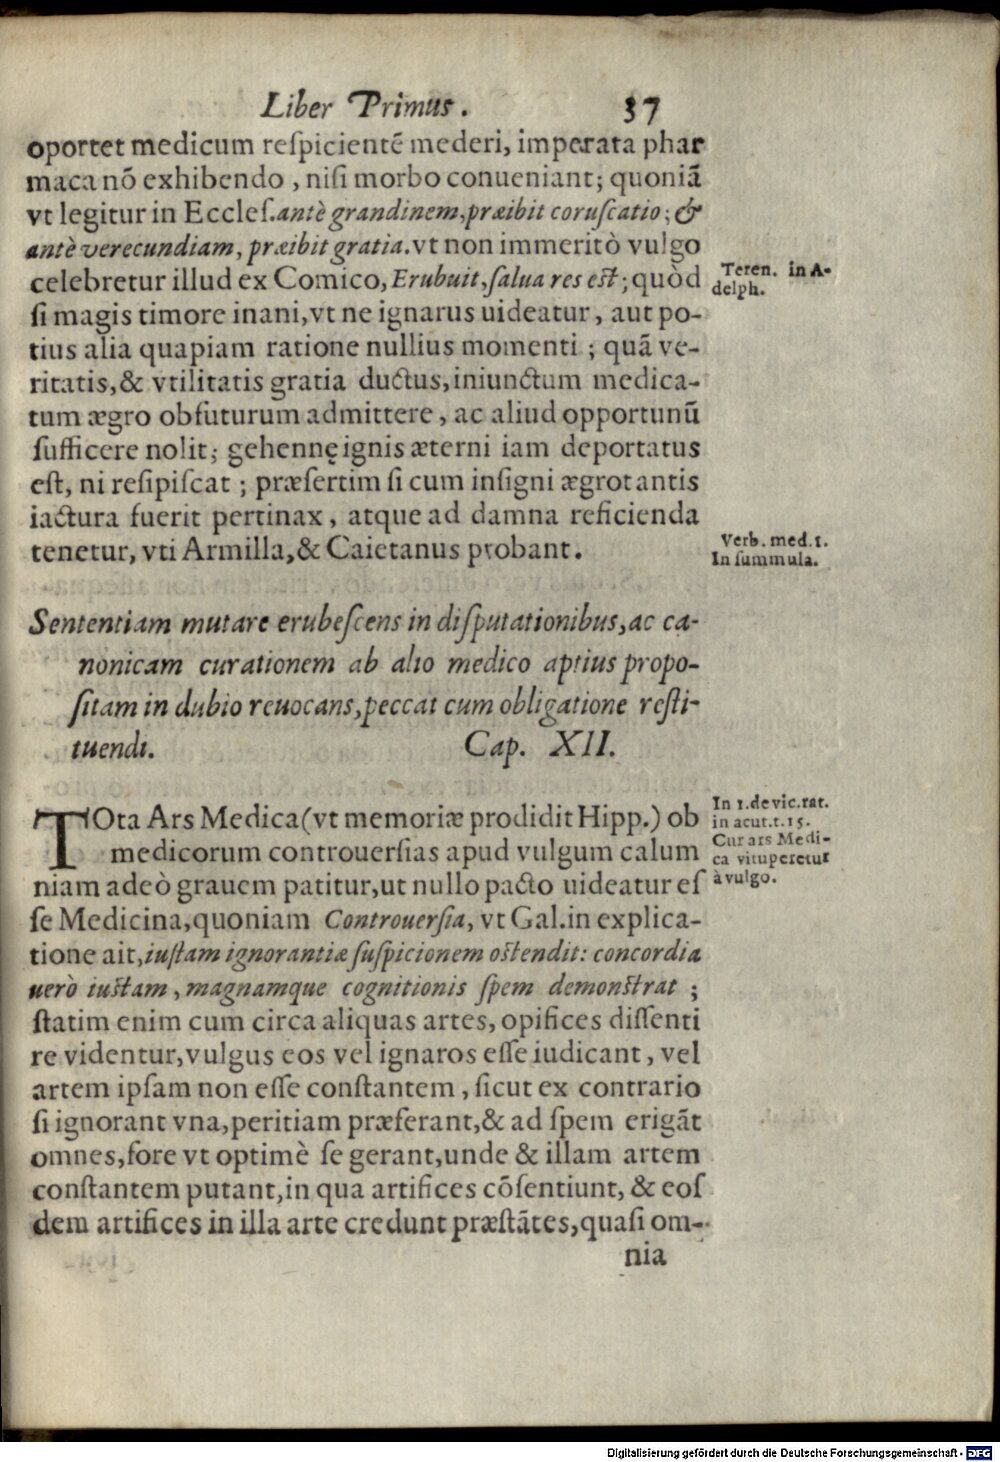 Liber Primus. 37
oportet medicum reſpicientē mederi, imperata phar
maca nō exhibendo , niſi morbo conueniant; quoniā
vt legitur in Eccleſ. antè grandinem, præibit coruſcatio; &
antè verecundiam, præibit gratia. vt non immeritò vulgo
celebretur illud ex Comico, Erubuit, ſalua res eſt; quòd
Teren. in A-
delph.
ſi magis timore inani, vt ne ignarus uideatur, aut po-
tius alia quapiam ratione nullius momenti ; quā ve-
ritatis, & vtilitatis gratia ductus, iniunctum medica-
tum ægro obfuturum admittere, ac aliud opportunū
ſufficere nolit; gehennę ignis æterni iam deportatus
eſt, ni reſipiſcat ; præſertim ſi cum inſigni ægrotantis
iactura fuerit pertinax, atque ad damna reficienda
tenetur, vti Armilla, & Caietanus probant.
Verb. med. 1.
In ſummula.
Sententiam mutare erubeſcens in diſputationibus, ac ca-
nonicam curationem ab alio medico aptius propo-
ſitam in dubio reuocans, peccat cum obligatione reſti-
tuendi. Cap. XII.
TOta Ars Medica (vt memoriæ prodidit Hipp.) ob
medicorum controuerſias apud vulgum calum
niam adeò grauem patitur, ut nullo pacto uideatur eſ
ſe Medicina, quoniam Controuerſia, vt Gal. in explica-
In 1. de vic. rat.
in acut. t. 15.
Cur ars Medi-
ca vituperetur
à vulgo.
tione ait, iuſtam ignorantiæ ſuſpicionem oſtendit: concordia
uerò iuſtam, magnamque cognitionis ſpem demonſtrat ;
ſtatim enim cum circa aliquas artes, opifices diſſenti
re videntur, vulgus eos vel ignaros eſſe iudicant, vel
artem ipſam non eſſe conſtantem, ſicut ex contrario
ſi ignorant vna, peritiam præferant, & ad ſpem erigāt
omnes, fore vt optimè ſe gerant, unde & illam artem
conſtantem putant, in qua artifices cōſentiunt, & eoſ
dem artifices in illa arte credunt præſtātes, quaſi om-
nia
Digitalisierung gefördert durch die Deutsche Forschungsgemeinschaft - DFG